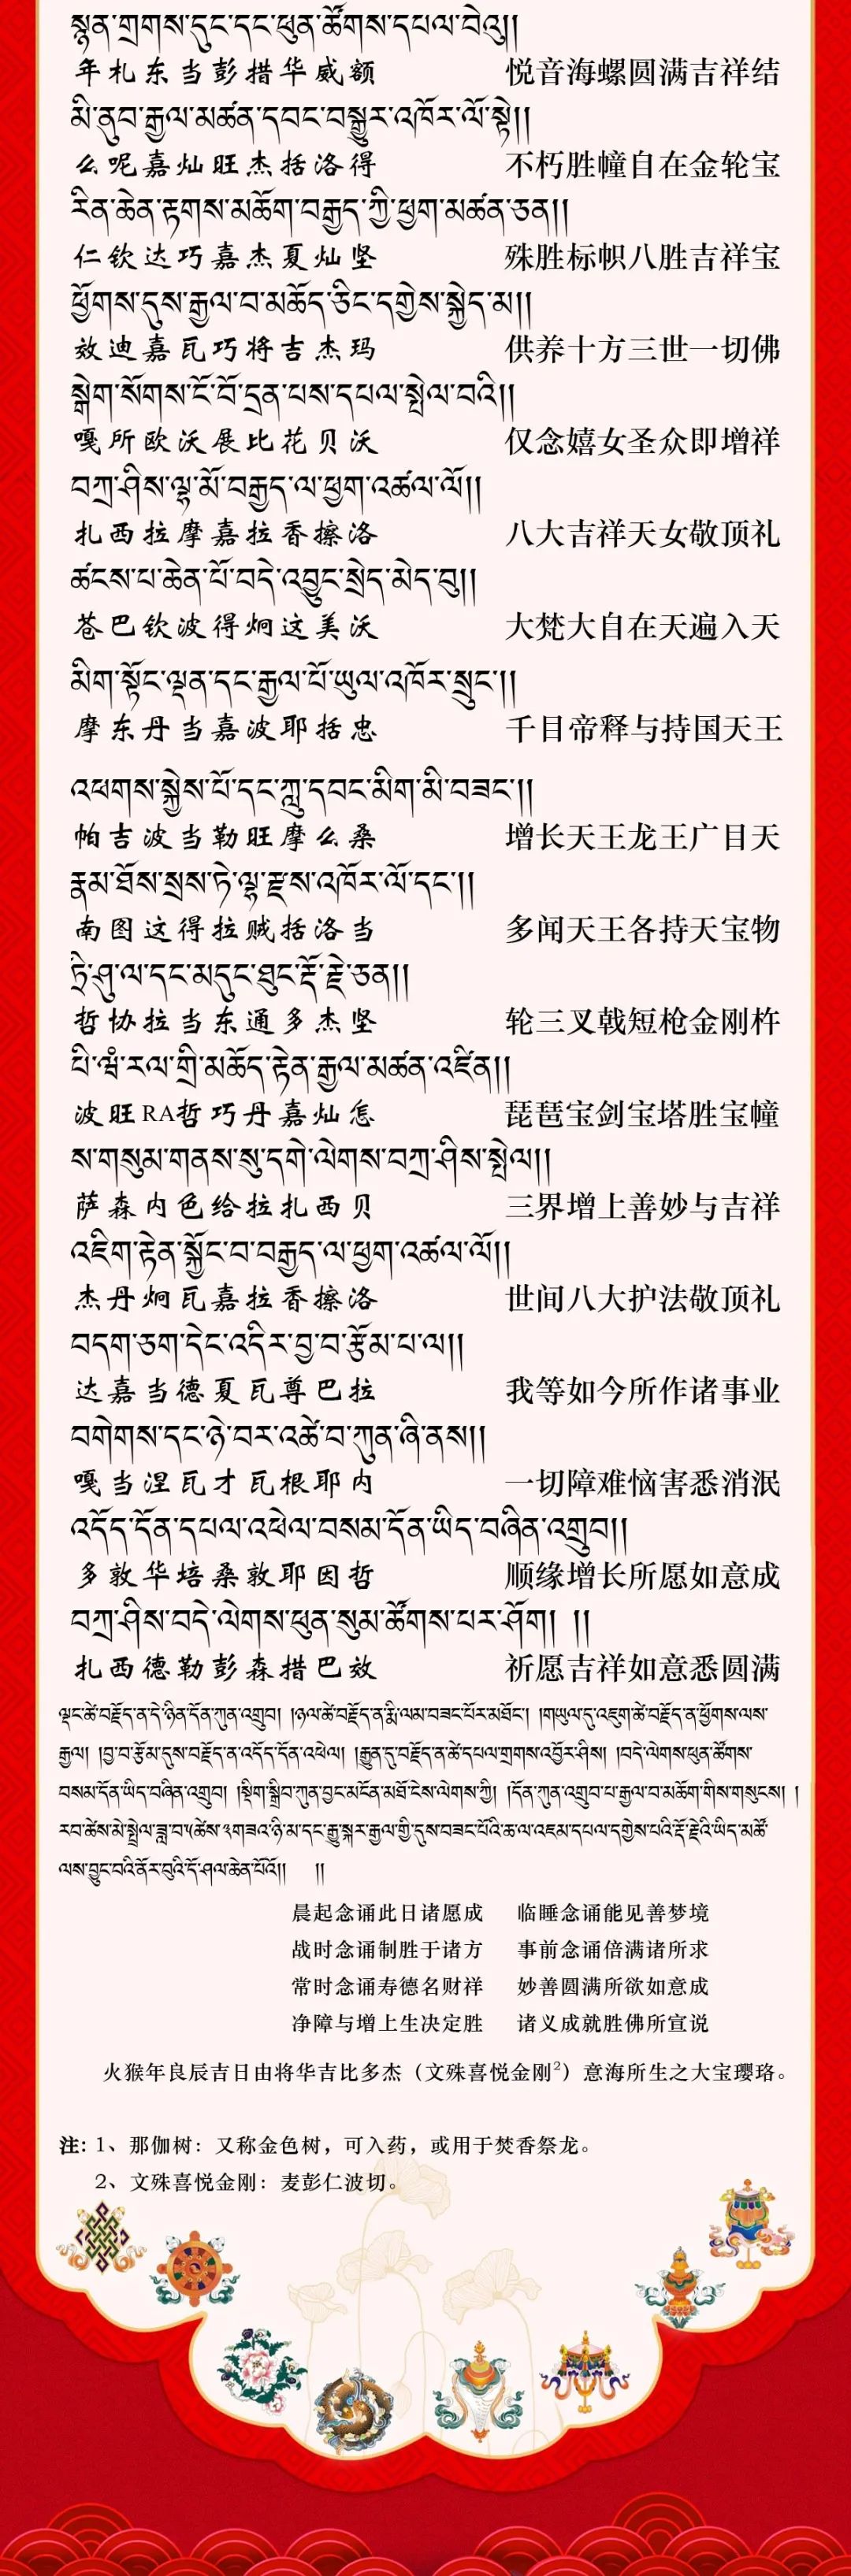 སྙན་གྲགས་དུང་དང་ཕུན་ཚོགས་དཔལ་བེའུ།།
年札东当彭措华威额 悦音海螺圆满吉祥结
མི་ནུབ་རྒྱལ་མཚན་དབང་བསྒྱུར་འཁོར་ལོ་སྟེ།།
么呢嘉灿旺杰括洛得 不朽胜幢自在金轮宝
རིན་ཆེན་རྟགས་མཆོག་བརྒྱད་ཀྱི་ཕྱག་མཚན་ཅན།།
仁钦达巧嘉杰夏灿坚 殊胜标帜八胜吉祥宝
ཕྱོགས་དུས་རྒྱལ་བ་མཆོད་ཅིང་དགྱེས་སྐྱེད་མ།།
效迪嘉瓦巧将吉杰玛 供养十方三世一切佛
སྒེག་སོགས་ངོ་བོ་དྲན་པས་དཔལ་སྤེལ་བའི།།
嘎所欧沃展比花贝沃 仅念嬉女圣众即增祥
བཀྲ་ཤིས་ལྷ་མོ་བརྒྱད་ལ་ཕྱག་འཚལ་ལོ།།
扎西拉摩嘉拉香擦洛 八大吉祥天女敬顶礼
ཚངས་པ་ཆེན་པོ་བདེ་འབྱུང་སྲེད་མེད་བུ།།
苍巴钦波得炯这美沃 大梵大自在天遍入天
མིག་སྟོང་ལྡན་དང་རྒྱལ་པོ་ཡུལ་འཁོར་སྲུང་།།
摩东丹当嘉波耶括忠 千目帝释与持国天王
འཕགས་སྐྱེས་པོ་དང་ཀླུ་དབང་མིག་མི་བཟང་།།
帕吉波当勒旺摩么桑 增长天王龙王广目天
རྣམ་ཐོས་སྲས་ཏེ་ལྷ་རྫས་འཁོར་ལོ་དང་།།
南图这得拉贼括洛当 多闻天王各持天宝物
ཏྲི་ཤུ་ལ་དང་མདུང་ཐུང་རྡོ་རྗེ་ཅན།།
哲协拉当东通多杰坚 轮三叉戟短枪金刚杵
པི་ཝཾ་རལ་གྲི་མཆོད་རྟེན་རྒྱལ་མཚན་འཛིན།།
波旺RA哲巧丹嘉灿怎 琵琶宝剑宝塔胜宝幢
ས་གསུམ་གནས་སུ་དགེ་ལེགས་བཀྲ་ཤིས་སྤེལ།།
萨森内色给拉扎西贝 三界增上善妙与吉祥
འཇིག་རྟེན་སྐྱོང་བ་བརྒྱད་ལ་ཕྱག་འཚལ་ལོ།།
杰丹炯瓦嘉拉香擦洛 世间八大护法敬顶礼
བདག་ཅག་དེང་འདིར་བྱ་བ་རྩོམ་པ་ལ།།
达嘉当德夏瓦尊巴拉 我等如今所作诸事业
བགེགས་དང་ཉེ་བར་འཚེ་བ་ཀུན་ཞི་ནས།།
嘎当涅瓦才瓦根耶内 一切障难恼害悉消泯
འདོད་དོན་དཔལ་འཕེལ་བསམ་དོན་ཡིད་བཞིན་འགྲུབ།།
多敦华培桑敦耶因哲 顺缘增长所愿如意成
བཀྲ་ཤིས་བདེ་ལེགས་ཕུན་སུམ་ཚོགས་པར་ཤོག། །།
扎西德勒彭森措巴效 祈愿吉祥如意悉圆满
ལྡང་ཚེ་བརྗོད་ན་དེ་ཉིན་དོན་ཀུན་འགྲུབ། །ཉལ་ཚེ་བརྗོད་ན་རྨི་ལམ་བཟང་པོར་མཐོང་། །གཡུལ་དུ་འཇུག་ཚེ་བརྗོད་ན་ཕྱོགས་ལས་
རྒྱལ། །བྱ་བ་རྩོམ་དུས་བརྗོད་ན་འདོད་དོན་འཕེལ། །རྒྱུན་དུ་བརྗོད་ན་ཚེ་དཔལ་གྲགས་འབྱོར་ཤིས། །བདེ་ལེགས་ཕུན་ཚོགས་
བསམ་དོན་ཡིད་བཞིན་འགྲུབ། །སྡིག་སྒྲིབ་ཀུན་བྱང་མངོན་མཐོ་ངེས་ལེགས་ཀྱི། །དོན་ཀུན་འགྲུབ་པ་རྒྱལ་བ་མཆོག་གིས་གསུངས། །
རབ་ཚེས་མེ་སྤྲེལ་ཟླ་བ་༥ཚེས་༣གཟའ་ཉི་མ་དང་རྒྱུ་སྐར་རྒྱལ་གྱི་དུས་བཟང་པོའི་ཆ་ལ་འཇམ་དཔལ་དགྱེས་པའི་རྡོ་རྗེའི་ཡིད་མཚོ་
ལས་བྱུང་བའི་ནོར་བུའི་དོ་ཤལ་ཆེན་པོའོ།། །།
晨起念诵此日诸愿成 临睡念诵能见善梦境
战时念诵制胜于诸方 事前念诵倍满诸所求
常时念诵寿德名财祥 妙善圆满所欲如意成
净障与增上生决定胜 诸义成就胜佛所宣说
火猴年良辰吉日由将华吉比多杰（文殊喜悦金刚2）意海所生之大宝璎珞。
注：1、那伽树：又称金色树，可入药，或用于焚香祭龙。
2、文殊喜悦金刚：麦彭仁波切。